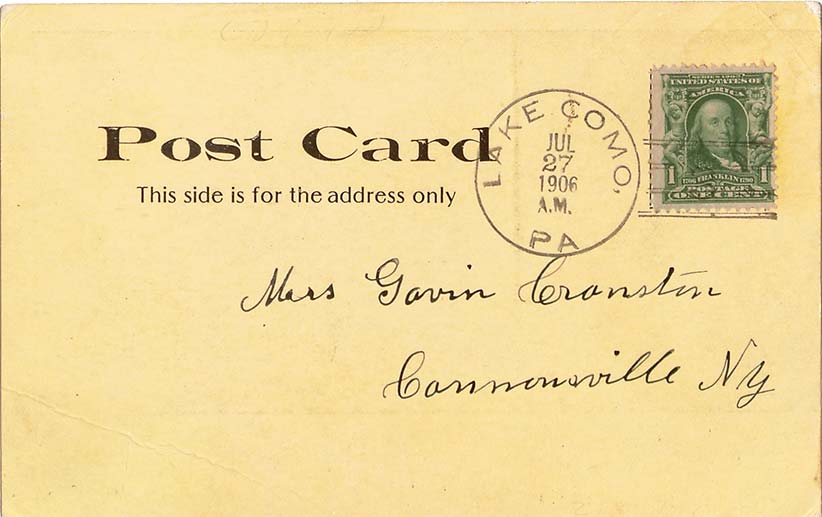 Post Card
This side is for the address only
LAKE COMO,
JUL
27
1906
A.M.
PA
SERIES 1902
UNITED STATES OF
AMERICA
1 1
1706 FRANKLIN 1790
POSTAGE
ONE CENT
Mrs Gavin Cranston
Cannonsville NY